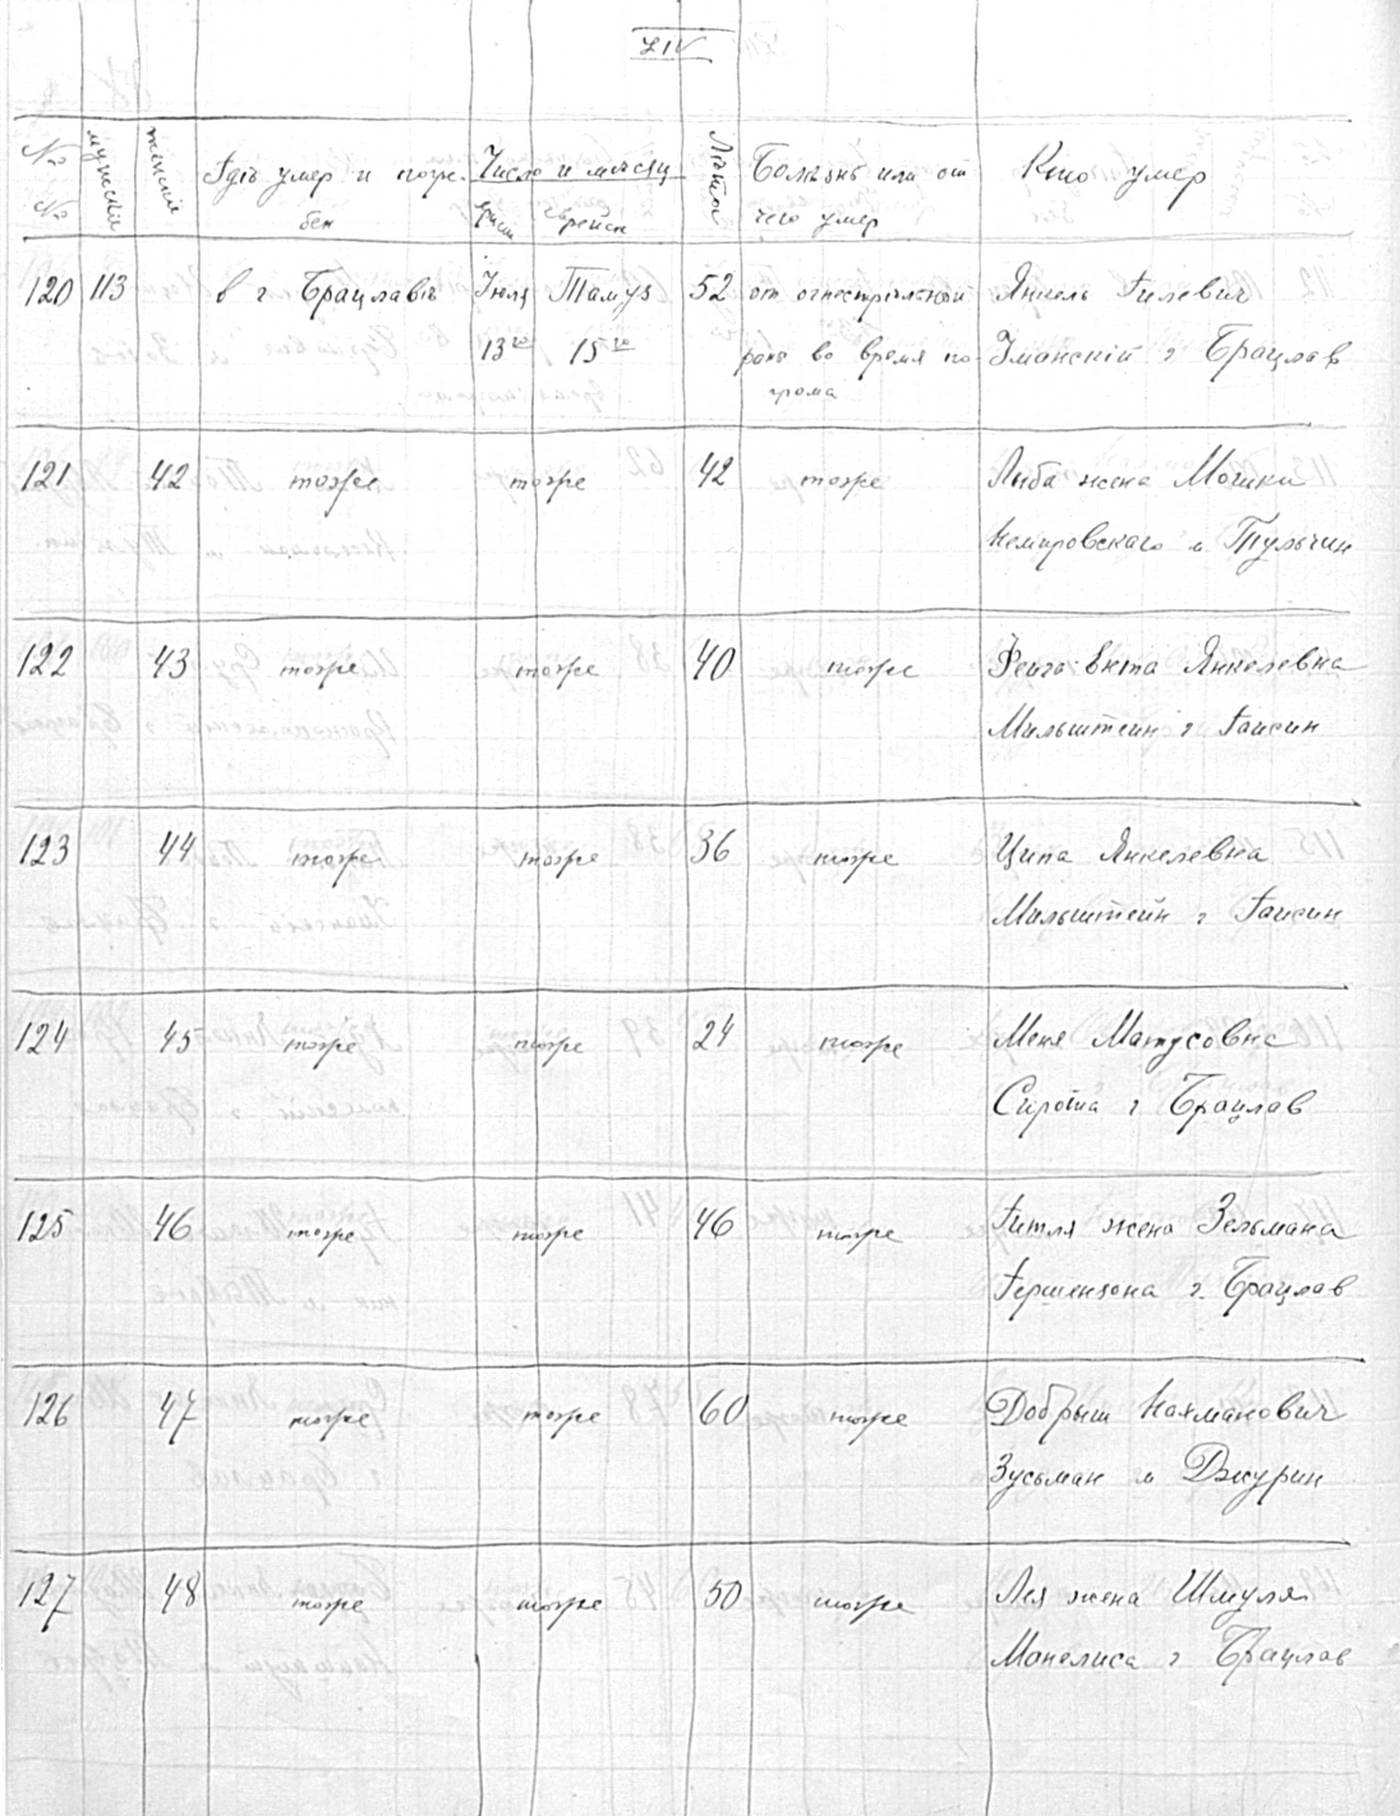 XIV
№ № мужскіе женскіе Гдѣ умер и погре- Число и мѣсяц Лѣта Болѣзнь или от Кто умер
бен христ еврейск чего умер
120 113 в г Брацлавѣ Июля Тамуз 52 от огнестрѣльной Янкель Гилевич
13го 15го раны во время по- Уманскій г Брацлав
грома
121 42 тоже тоже 42 тоже Лыба жена Мошки
Немировскаго м Тульчин
122 43 тоже тоже 40 тоже Фейга-Ента Янкелевна
Мильштейн г Гайсин
123 44 тоже тоже 36 тоже Ципа Янкелевна
Мильштейн г Гайсин
124 45 тоже тоже 24 тоже Меня Матусовна
Сирота г Брацлав
125 46 тоже тоже 46 тоже Гитля жена Зельмана
Гершензона г. Брацлав
126 47 тоже тоже 60 тоже Добрыш Нахманович
Зусьман м Джурин
127 48 тоже тоже 50 тоже Лея жена Шмуля
Манелиса г Брацлав